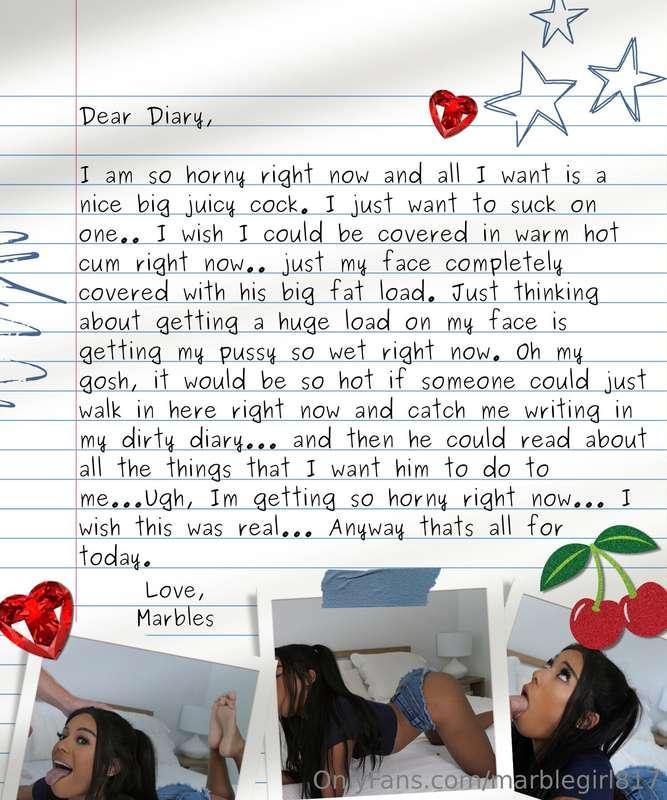 Dear Diary,
I am so horny right now and all I want is a
nice big juicy cock. I just want to suck on
one.. I wish I could be covered in warm hot
cum right now.. just my face completely
covered with his big fat load. Just thinking
about getting a huge load on my face is
getting my pussy so wet right now. Oh my
gosh, it would be so hot if someone could just
walk in here right now and catch me writing in
my dirty diary... and then he could read about
all the things that I want him to do to
me...Ugh, Im getting so horny right now... I
wish this was real... Anyway thats all for
today.
Love,
Marbles
OnlyFans.com/marblegirl817